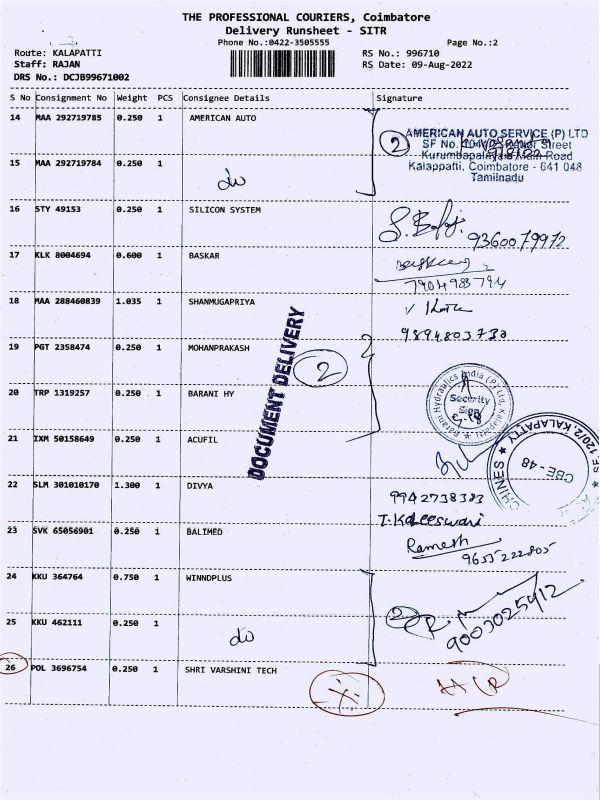 THE PROFESSIONAL COURIERS, Coimbatore
Delivery Runsheet - SITR
Phone No.:0422-3505555
Page No.:2
Route: KALAPATTI
RS No.: 996710
Staff: RAJAN
RS Date: 09-Aug-2022
DRS No.: DCJB99671002
S No Consignment No Weight PCS Consignee Details Signature
14 MAA 292719785 0.250 1 AMERICAN AUTO
2 AMERICAN AUTO SERVICE (P) LTD
SF No. Street
Kurumbapalayam Main Road
Kalappatti, Coimbatore - 641 048
Tamilnadu
15 MAA 292719784 0.250 1 do
16 STY 49153 0.250 1 SILICON SYSTEM
9360079972
17 KLK 8004694 0.600 1 BASKAR
7904983794
18 MAA 288460839 1.035 1 SHANMUGAPRIYA
9894803730
19 PGT 2358474 0.250 1 MOHANPRAKASH
DOCUMENT DELIVERY
2
20 TRP 1319257 0.250 1 BARANI HY
Barani Hydraulics India (P) Ltd, Kalapatti
Security
Sign
21 IXM 50158649 0.250 1 ACUFIL
CHINES ★ SF 120/2, KALAPATTY
CBE - 48
22 SLM 301010170 1.300 1 DIVYA
9942738383
T. Kaleeswari
23 SVK 65056901 0.250 1 BALIMED
Ramesh
9655222805
24 KKU 364764 0.750 1 WINNDPLUS
2
9003025912
25 KKU 462111 0.250 1 do
26 POL 3696754 0.250 1 SHRI VARSHINI TECH